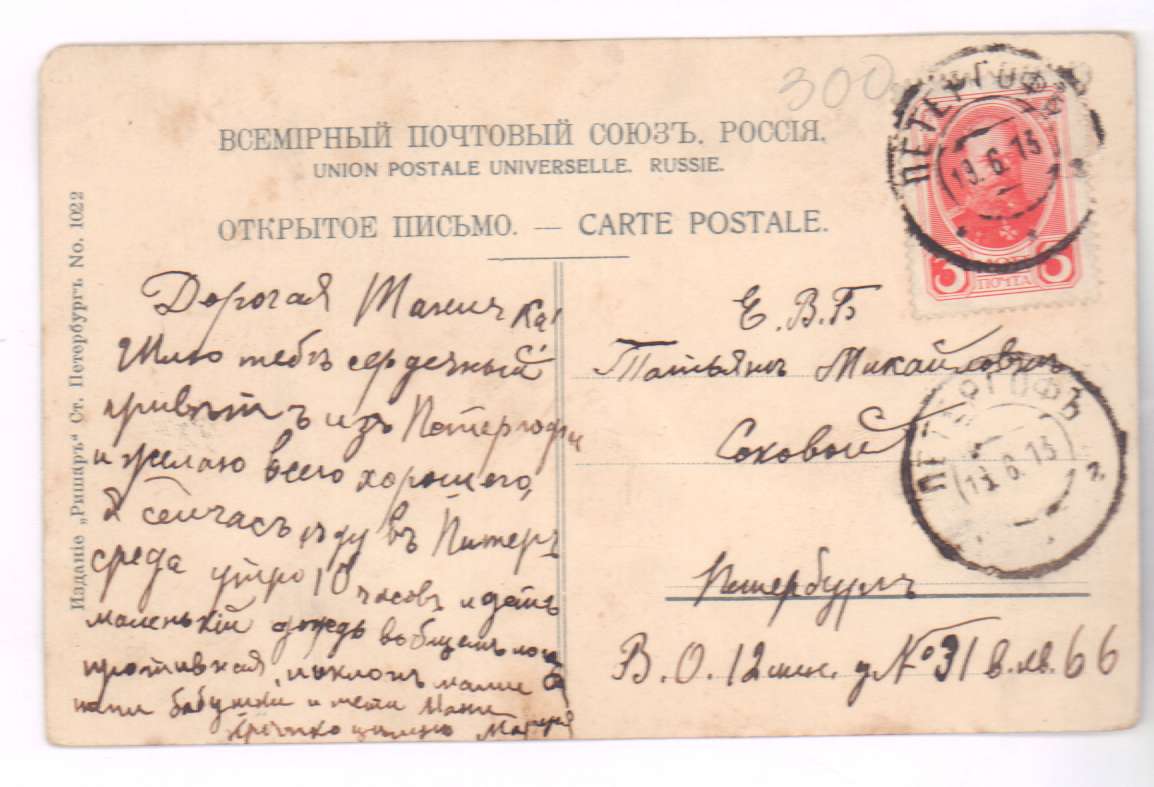 300
ВСЕМІРНЫЙ ПОЧТОВЫЙ СОЮЗЪ. РОССІЯ.
UNION POSTALE UNIVERSELLE. RUSSIE.
ОТКРЫТОЕ ПИСЬМО. — CARTE POSTALE.
Изданіе „Ришаръ“ Ст. Петербургъ No. 1022
ПЕТЕРГОФЪ
13.6.13
3 КОП 3
ПОЧТА
Дорогая Таничка!
Шлю тебѣ сердечный
привѣтъ изъ Петергофа
и желаю всего хорошего,
Я сейчасъ ѣду въ Питеръ
среда утро 10 часовъ идетъ
маленькій дождь вобщемъ
противная, поклонъ мамѣ
папѣ бабушки и тети Мани
Крѣпко цѣлую
Е.В.Б
Татьянѣ Михайловнѣ
Соковой
ПЕТЕРГОФЪ
13.6.13
2
Петербургъ
В.О. 12 лин. д № 31 в. кв. 66